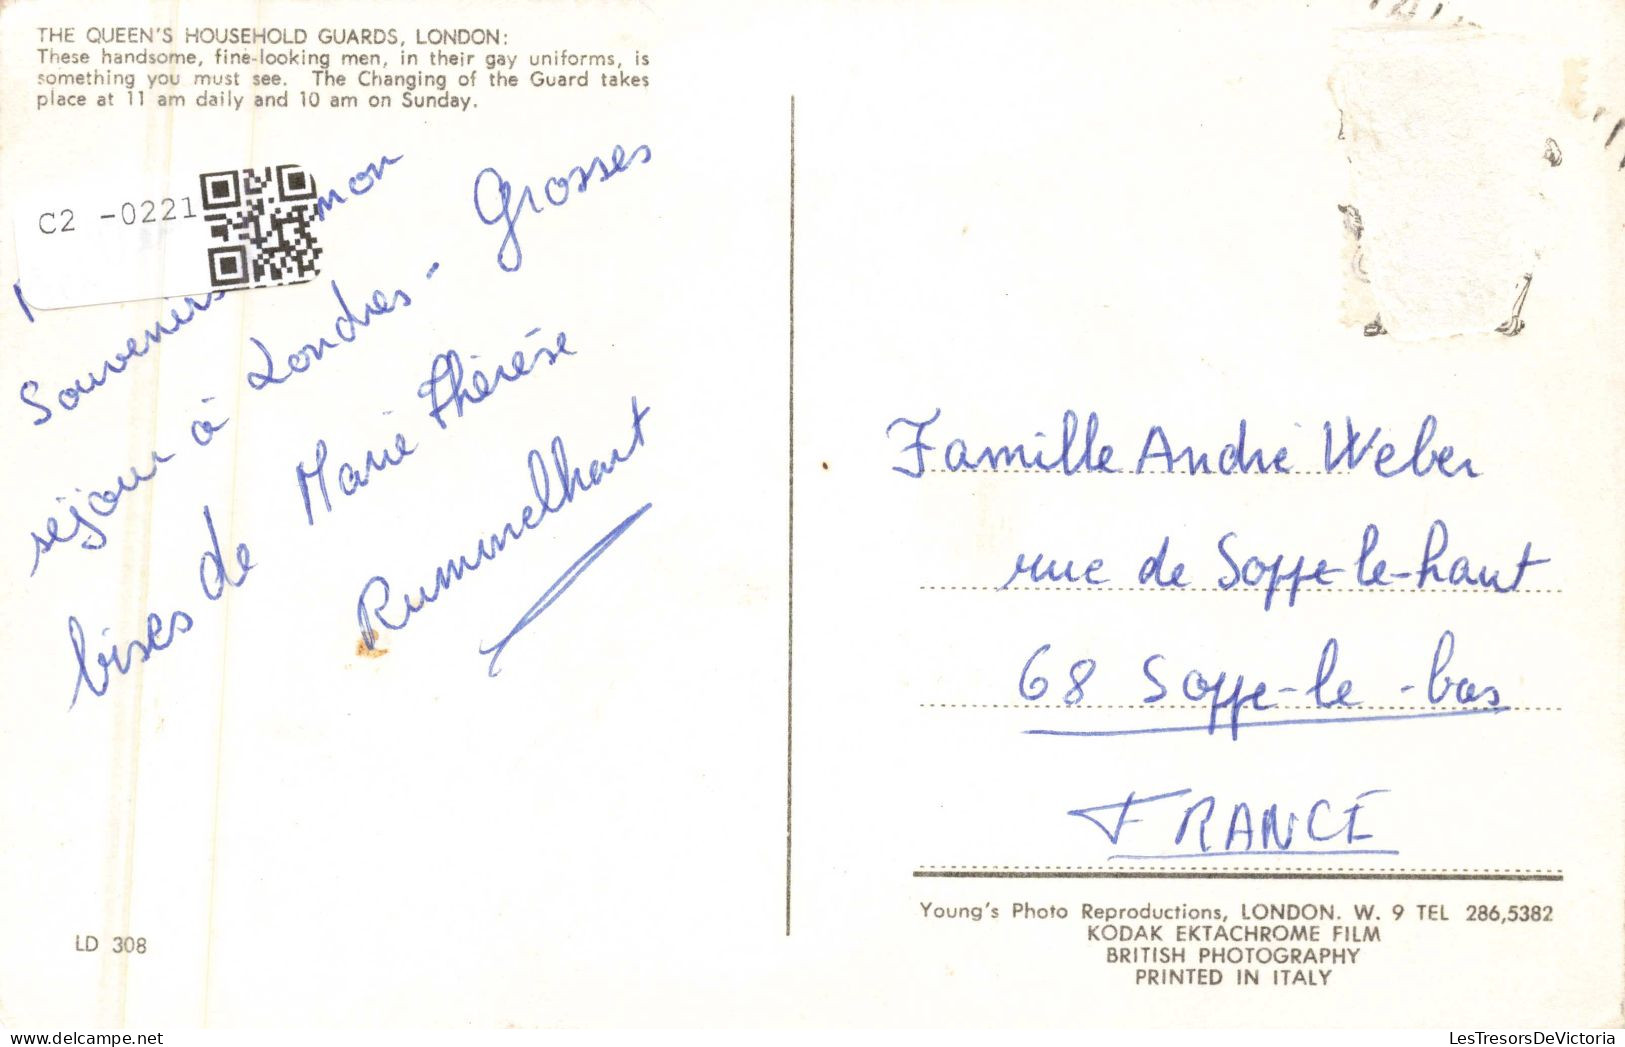 THE QUEEN'S HOUSEHOLD GUARDS, LONDON:
These handsome, fine-looking men, in their gay uniforms, is
something you must see. The Changing of the Guard takes
place at 11 am daily and 10 am on Sunday.
C2 -0221
Souvenirs mon
séjour à Londres - Grosses
bises de Marie Thérèse
Rummelhart
Famille André Weber
rue de Soppe-le-haut
68 Soppe-le-bas
FRANCE
Young's Photo Reproductions, LONDON. W. 9 TEL 286,5382
KODAK EKTACHROME FILM
BRITISH PHOTOGRAPHY
PRINTED IN ITALY
LD 308
LesTresorsDeVictoria